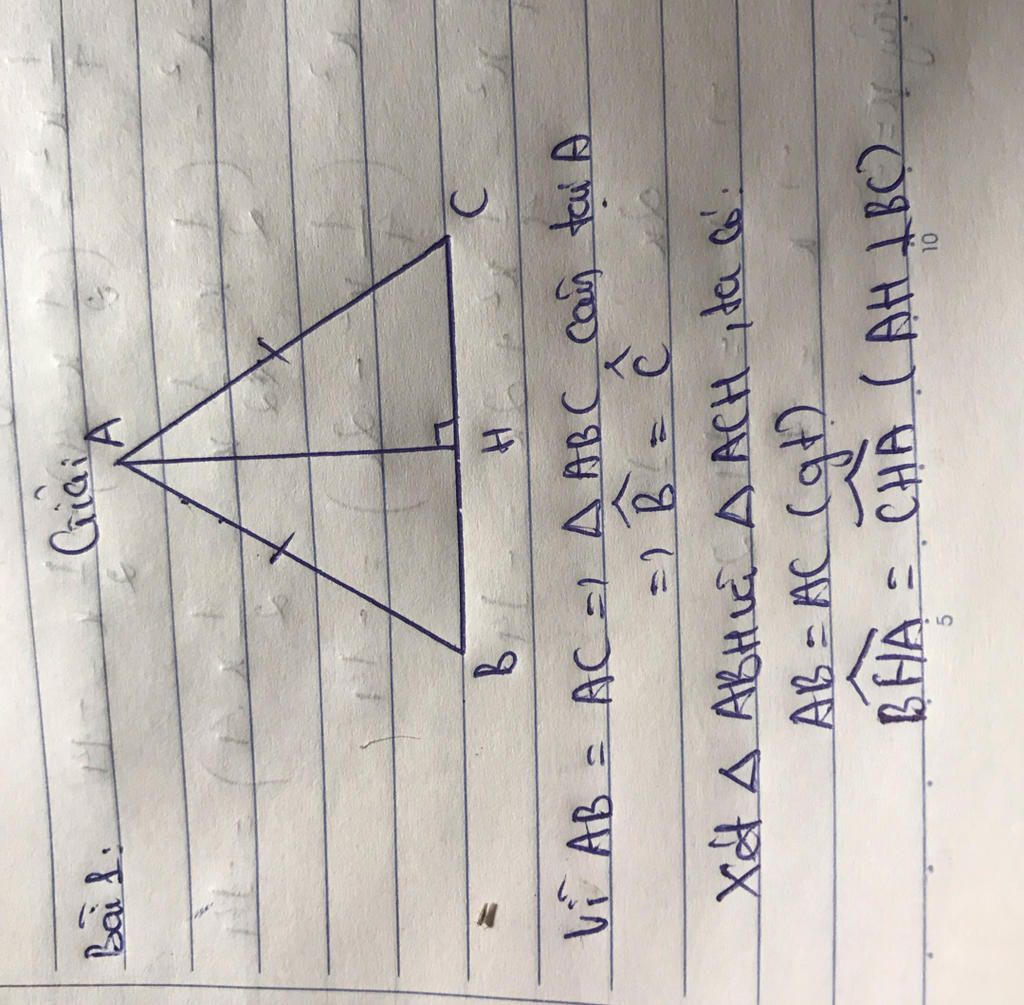 Bài 1:
Giải:
A
B
H
C
Vì AB = AC => △ ABC cân tại A
=> B̂ = Ĉ
Xét △ ABH và △ ACH, ta có:
AB = AC (gt)
B͡HA = C͡HA (AH ⊥ BC)
5
10